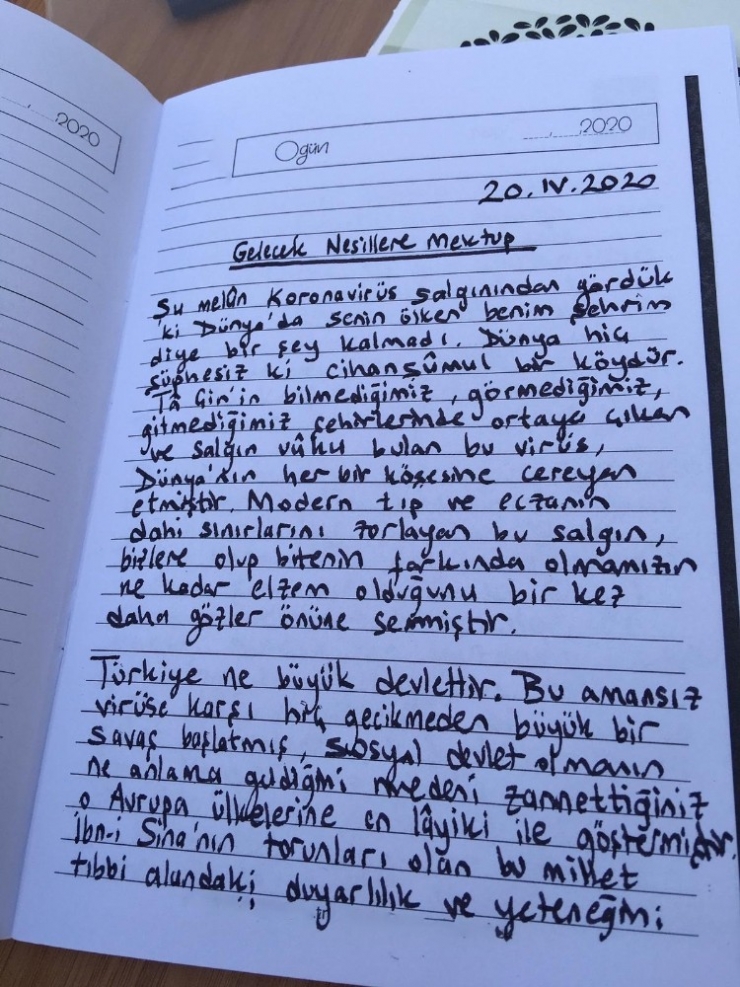 2020
Ogün
2020
20.IV.2020
Gelecek Nesillere Mektup
Şu melûn Koronavirüs salgınından gördük
ki Dünya'da senin ülken benim şehrim
diye bir şey kalmadı. Dünya hiç
şüphesiz ki cihanşûmul bir köydür.
Tâ Çin'in bilmediğimiz, görmediğimiz,
gitmediğimiz şehirlerinde ortaya çıkan
ve salgın vûku bulan bu virüs,
Dünya'nın her bir köşesine cereyan
etmiştir. Modern tıp ve eczanın
dahi sınırlarını zorlayan bu salgın,
bizlere olup bitenin farkında olmamızın
ne kadar elzem olduğunu bir kez
daha gözler önüne sermiştir.
Türkiye ne büyük devlettir. Bu amansız
virüse karşı hiç gecikmeden büyük bir
savaş başlatmış, sosyal devlet olmanın
ne anlama geldiğini medeni zannettiğiniz
o Avrupa ülkelerine en lâyiki ile göstermiştir.
İbn-i Sina'nın torunları olan bu millet
tıbbi alandaki duyarlılık ve yeteneğini